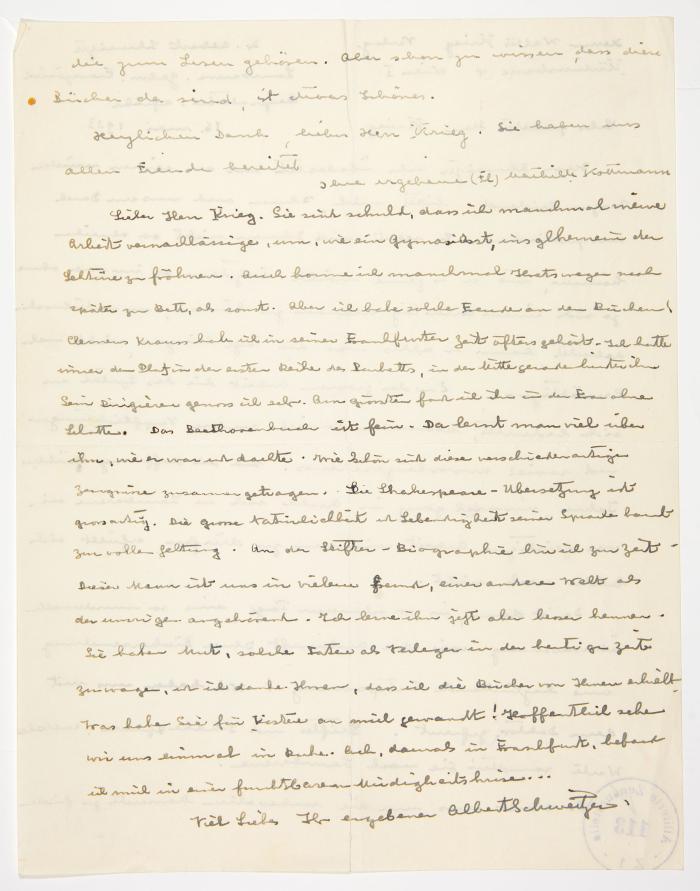 die zum Lesen gehören. Aber schon zu wissen, dass diese
Bücher da sind, ist etwas Schönes.
Herzlichen Dank, lieber Herr Krieg. Sie haben uns
allen Freude bereitet
Ihre ergebene (Frl) Mathilde Kottmann
Lieber Herr Krieg. Sie sind schuld, dass ich manchmal meine
Arbeit vernachlässige, um, wie ein Gymnasiast, insgeheim der
Lektüre zu fröhnen. Auch komme ich manchmal Ihretwegen noch
später zu Bett, als sonst. Aber ich habe solche Freude an den Büchern!
Clemens Krauss habe ich in seiner Frankfurter Zeit öfters gehört. Ich hatte
immer den Platz in der ersten Reihe des Parketts, in der Mitte gerade hinter ihm
Sein Dirigieren genoss ich sehr. Am grössten fand ich ihn in der Frau ohne
Schatten. Das Beethovenbuch ist fein. Da lernt man viel über
ihn, wie er war und dachte. Wie schön sind diese verschiedenartigen
Zeugnisse zusammengetragen. Die Shakespeare-Übersetzung ist
grossartig. Die grosse Natürlichkeit und Lebendigkeit seiner Sprache kommt
zur vollen Geltung. An der Stifter-Biographie bin ich zur Zeit.
Dieser Mann ist uns in vielem fremd, einer anderen Welt als
der unsrigen angehörend. Ich lerne ihn jetzt aber besser kennen.
Sie haben Mut, solche Taten als Verleger in der heutigen Zeit
zu wagen, und ich danke Ihnen, dass ich die Bücher von Ihnen erhielt.
Was habe Sie für Kosten an mich gewandt! Hoffentlich sehen
wir uns einmal in Ruhe. Ach, damals in Frankfurt, befand
ich mich in einer furchtbaren Müdigkeitskrise...
Viel Liebes Ihr ergebener Albert Schweitzer.
113